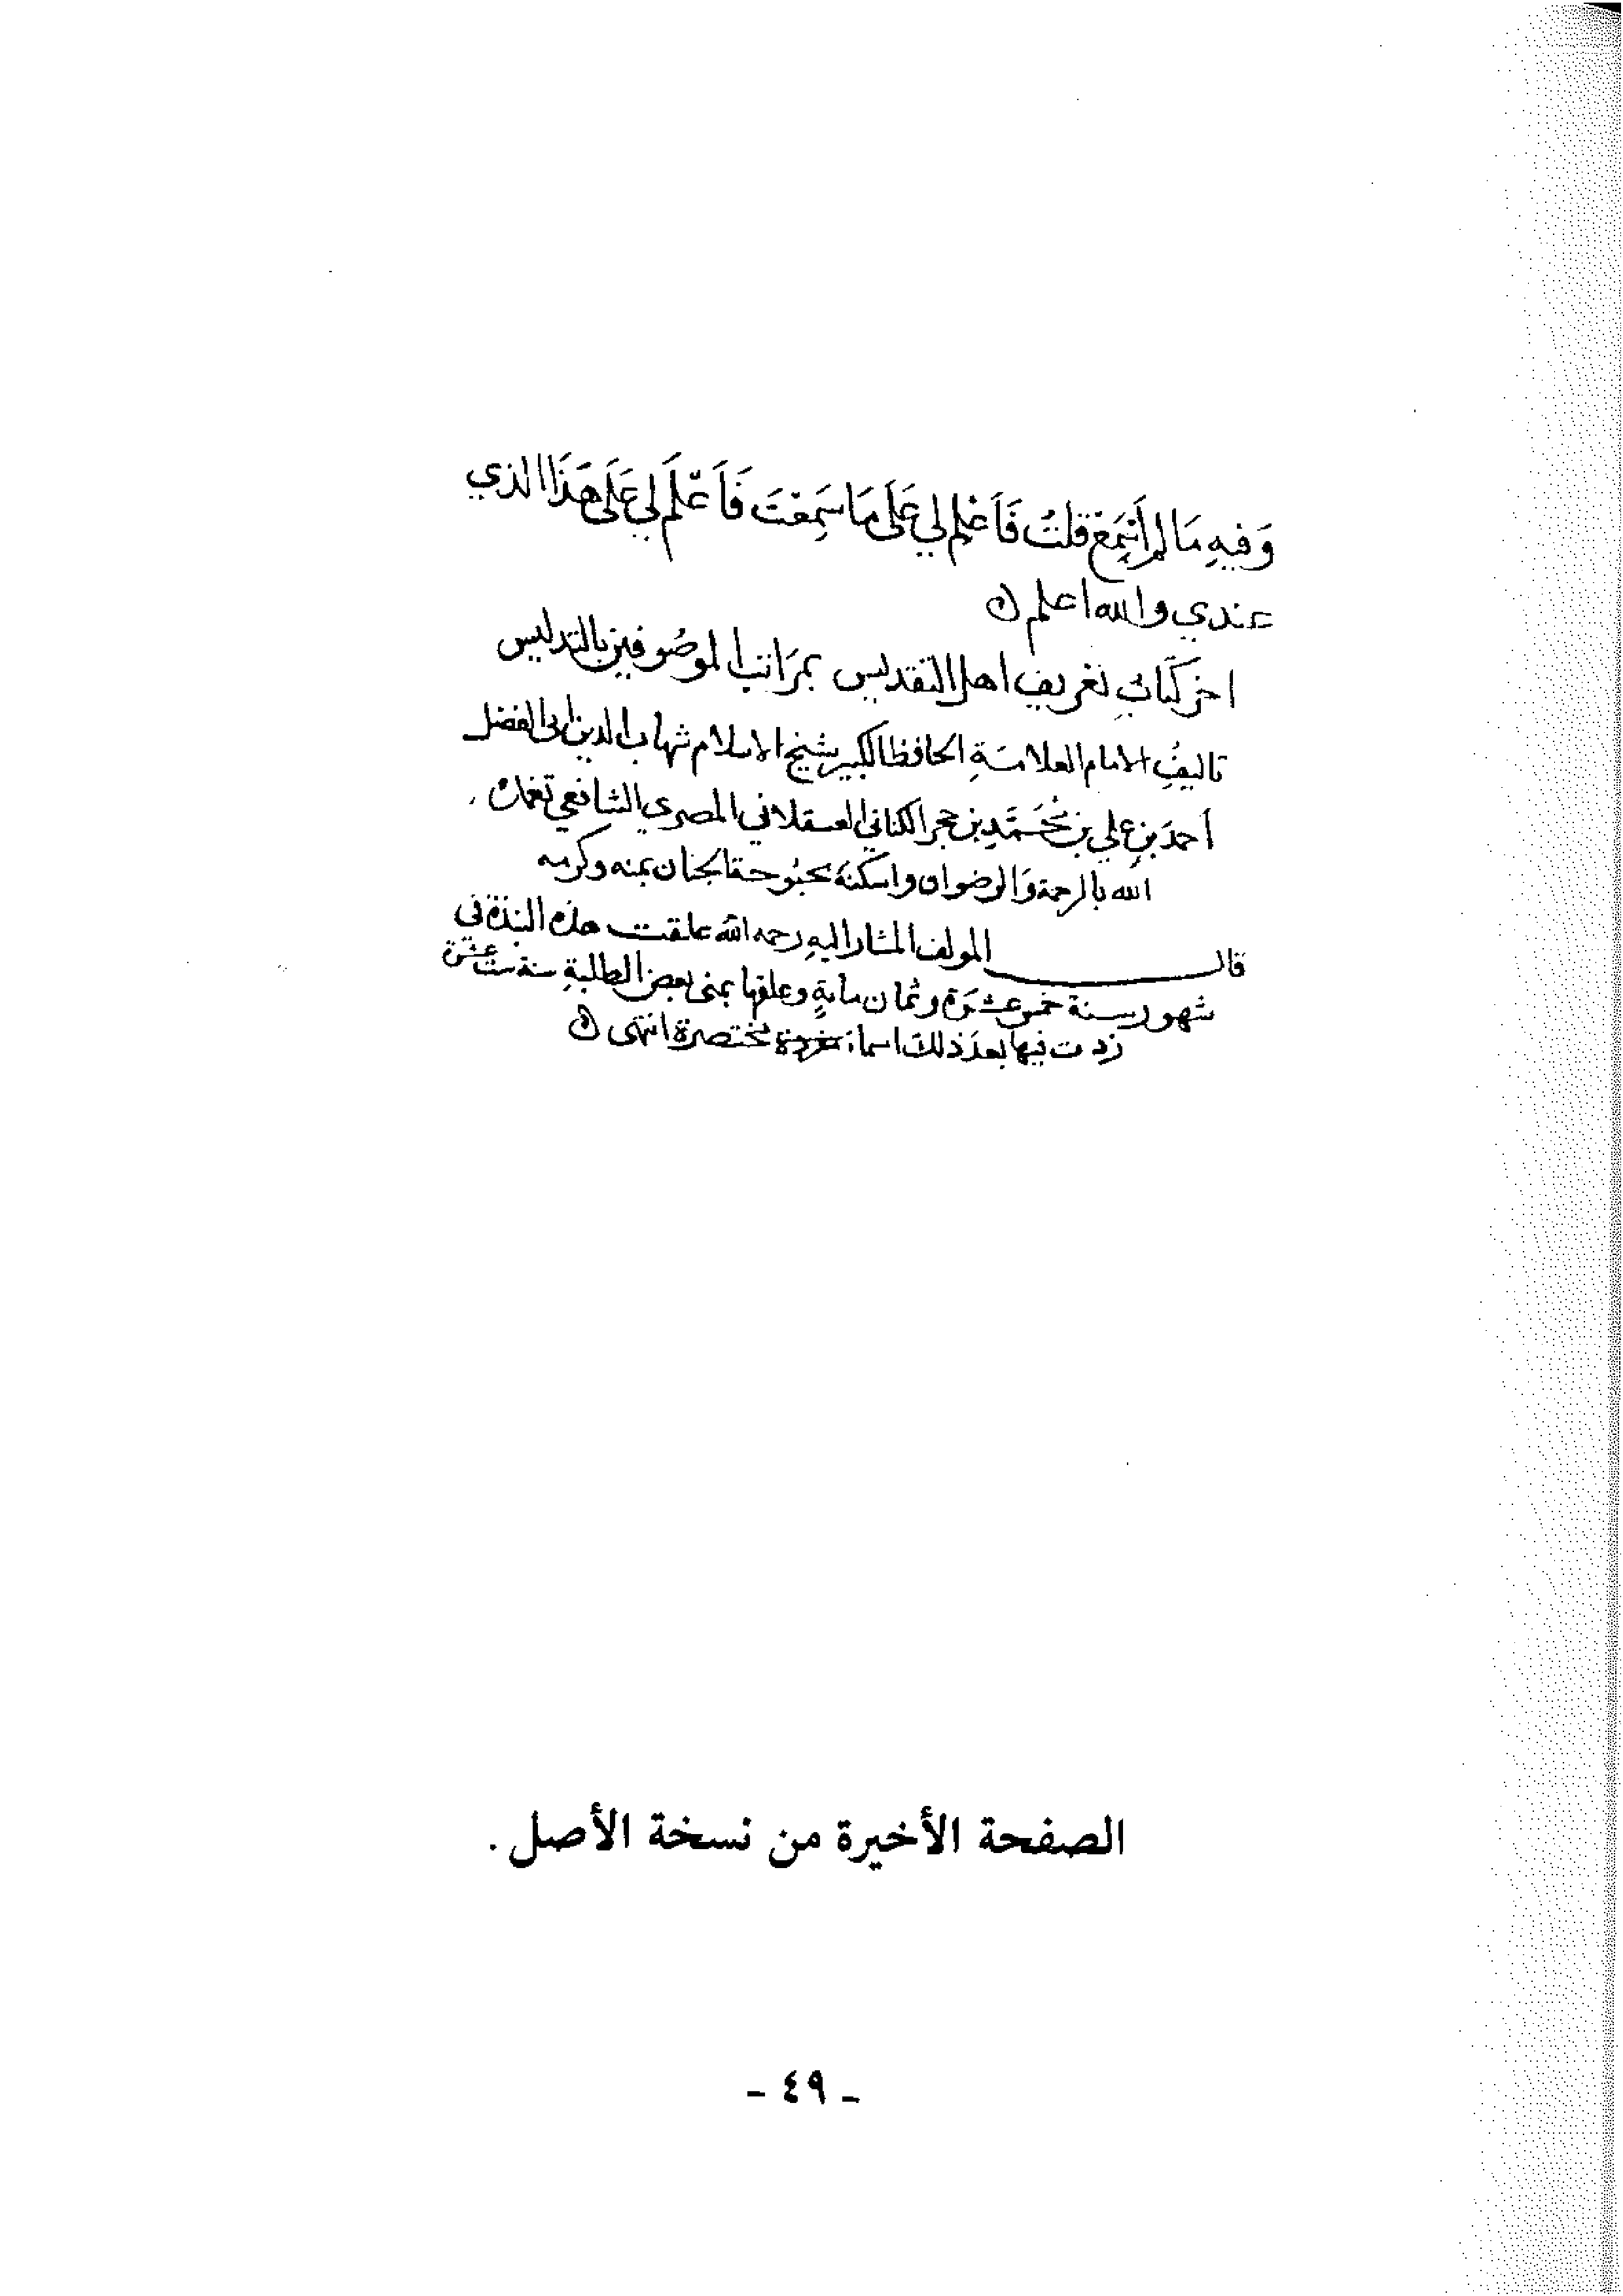 وَفيهِ مَا لم أَسْمَعْ قلتُ فَاَعْلِم لي عَلَى مَا سَمِعْتَ فَاَعْلَم لي عَلَى هَذَا الذي
عندي والله اعلم ن
اخر كتاب تعريف اهل التقديس بمراتب الموصُوفين بالتدليس
تاليف الامام العلامَةِ الحافظ الكبير شيخ الاسلام شهاب الدين ابى الفضل
أحمد بن علي بن مُحَمَّدِ بن حجر الكناني العسقلاني المصري الشافعي تغمده
الله بالرحمة وَالرضوان واسكنهَ بحبُوحة الجنان بمنه وكرمه
قال المولف المشار اليهِ رحمه الله علقت هذه النبذة فى
شهور سنة خمس عشرَة وثمان مايةٍ وعلقها عنى بعض الطلبةِ سنة ست عشرة
زدت فيها بعدَ ذلك اسماء مختصرة انتهى ن
الصفحة الأخيرة من نسخة الأصل .
ـ ٤٩ -